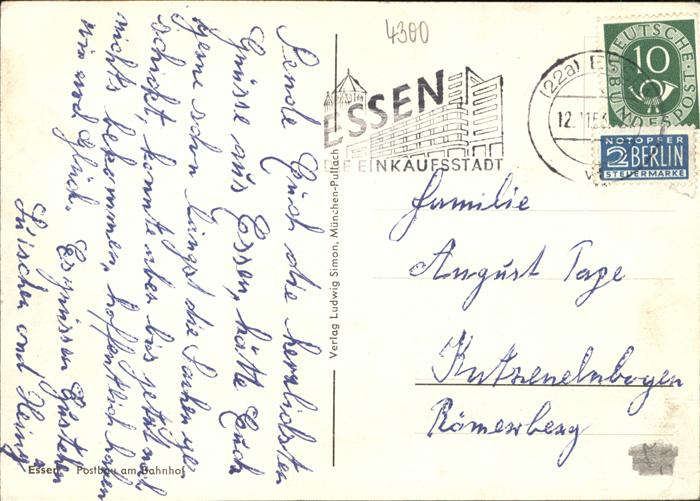 4300
DEUTSCHE
BUNDESPOST
10
(22a) E
12.11.53
NOTOPFER
2 BERLIN
STEUERMARKE
ESSEN
EINKAUFSSTADT
Familie
August Tage
Katzenelnbogen
Römerberg
Verlag Ludwig Simon, München-Pullach
Sende Euch die herzlichsten
Grüsse aus Essen, hätte Euch
gerne schon längst die Sachen ge-
schickt, konnte aber bis jetzt noch
nichts bekommen, hoffentlich haben
wir und Glück. Es grüssen Euch
und Heinz
Essen Postbau am Bahnhof